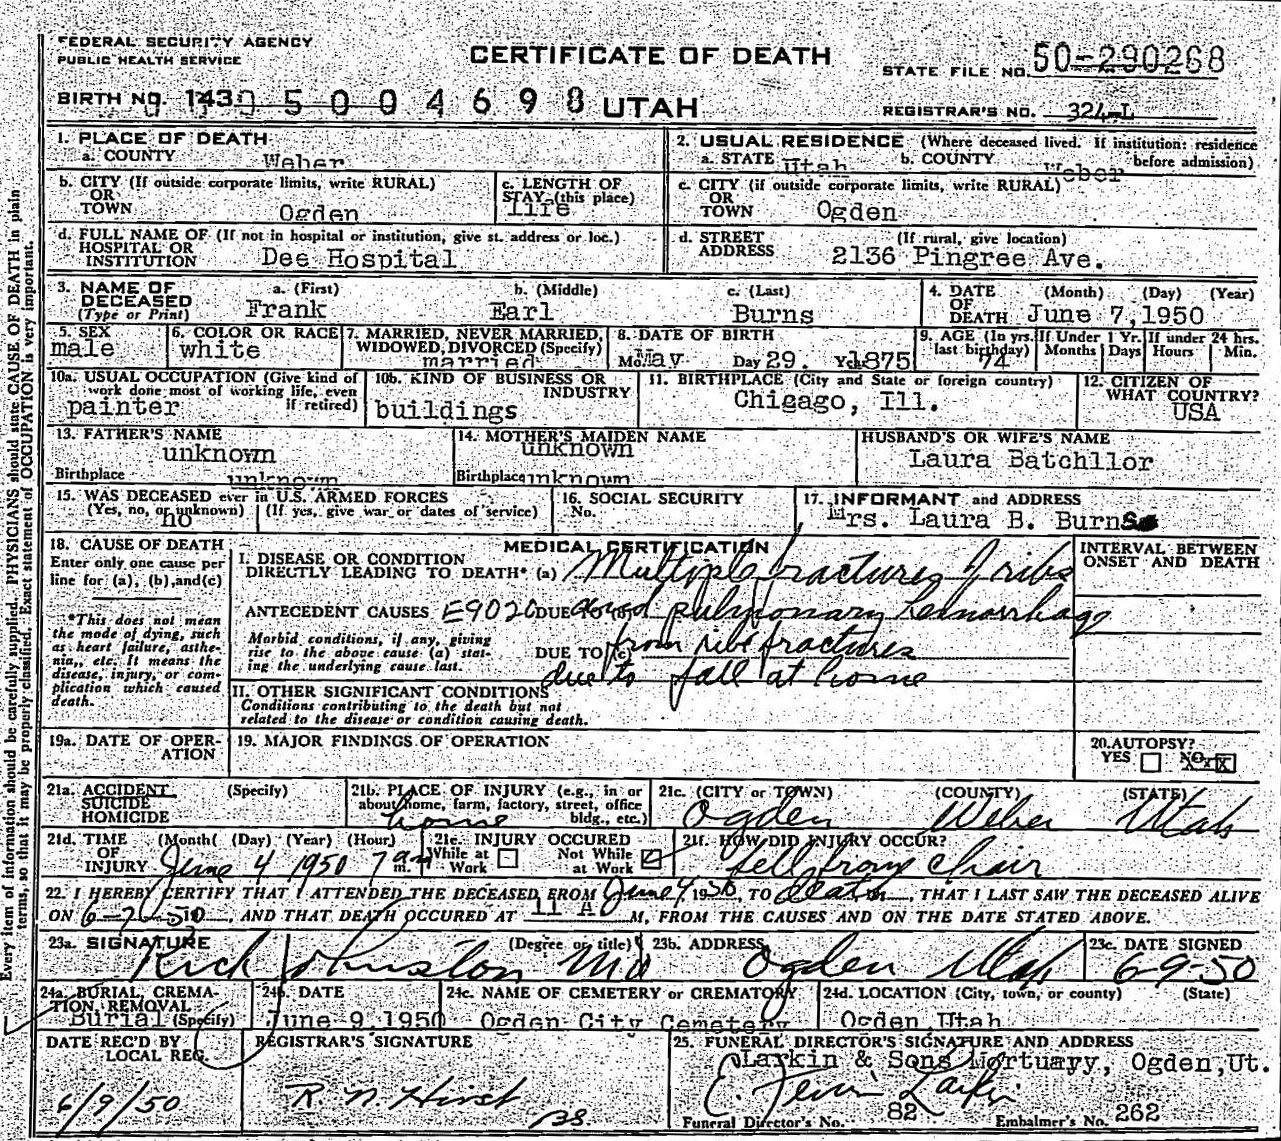 FEDERAL SECURITY AGENCY
PUBLIC HEALTH SERVICE
CERTIFICATE OF DEATH
STATE FILE NO. 50-290268
BIRTH NO. 143 5004698 UTAH
REGISTRAR'S NO. 324-L
1. PLACE OF DEATH
a. COUNTY Weber
2. USUAL RESIDENCE (Where deceased lived. If institution: residence before admission)
a. STATE Utah b. COUNTY Weber
b. CITY (If outside corporate limits, write RURAL)
OR
TOWN Ogden
c. LENGTH OF
STAY (this place)
life
c. CITY (if outside corporate limits, write RURAL)
OR
TOWN Ogden
d. FULL NAME OF (If not in hospital or institution, give st. address or loc.)
HOSPITAL OR
INSTITUTION Dee Hospital
d. STREET (If rural, give location)
ADDRESS 2136 Pingree Ave.
3. NAME OF
DECEASED
(Type or Print)
a. (First) Frank
b. (Middle) Earl
c. (Last) Burns
4. DATE (Month) (Day) (Year)
OF
DEATH June 7, 1950
5. SEX
male
6. COLOR OR RACE
white
7. MARRIED, NEVER MARRIED,
WIDOWED, DIVORCED (Specify)
married
8. DATE OF BIRTH
Mo. May Day 29. 1875
9. AGE (In yrs.
last birthday)
74
If Under 1 Yr.
Months Days
If under 24 hrs.
Hours Min.
10a. USUAL OCCUPATION (Give kind of
work done most of working life, even
if retired)
painter
10b. KIND OF BUSINESS OR
INDUSTRY
buildings
11. BIRTHPLACE (City and State or foreign country)
Chigago, Ill.
12. CITIZEN OF
WHAT COUNTRY?
USA
13. FATHER'S NAME
unknown
Birthplace unknown
14. MOTHER'S MAIDEN NAME
unknown
Birthplace unknown
HUSBAND'S OR WIFE'S NAME
Laura Batchllor
15. WAS DECEASED ever in U.S. ARMED FORCES
(Yes, no, or unknown) (If yes, give war or dates of service)
no
16. SOCIAL SECURITY
No.
17. INFORMANT and ADDRESS
Mrs. Laura B. Burns
18. CAUSE OF DEATH
Enter only one cause per
line for (a), (b), and (c)
*This does not mean
the mode of dying, such
as heart failure, asthe-
nia, etc. It means the
disease, injury, or com-
plication which caused
death.
MEDICAL CERTIFICATION
I. DISEASE OR CONDITION
DIRECTLY LEADING TO DEATH* (a) Multiple fractures of ribs
ANTECEDENT CAUSES E9020 DUE TO (b) and pulmonary hemorrhage
Morbid conditions, if any, giving
rise to the above cause (a) stat-
ing the underlying cause last.
DUE TO (c) from rib fractures
due to fall at home
II. OTHER SIGNIFICANT CONDITIONS
Conditions contributing to the death but not
related to the disease or condition causing death.
INTERVAL BETWEEN
ONSET AND DEATH
19a. DATE OF OPER-
ATION
19. MAJOR FINDINGS OF OPERATION
20. AUTOPSY?
YES NO X
21a. ACCIDENT (Specify)
SUICIDE
HOMICIDE
21b. PLACE OF INJURY (e.g., in or
about home, farm, factory, street, office
bldg., etc.)
home
21c. (CITY or TOWN) (COUNTY) (STATE)
Ogden Weber Utah
21d. TIME (Month( (Day) (Year) (Hour)
OF
INJURY June 4 1950 7 am m.
21e. INJURY OCCURED
While at Work
Not While at Work
21f. HOW DID INJURY OCCUR?
fell from chair
22. I HEREBY CERTIFY THAT I ATTENDED THE DECEASED FROM June 4, 1950, TO death, THAT I LAST SAW THE DECEASED ALIVE
ON 6-7-50, AND THAT DEATH OCCURED AT 11 A M, FROM THE CAUSES AND ON THE DATE STATED ABOVE.
23a. SIGNATURE (Degree or title)
Rich Johnston MD
23b. ADDRESS
Ogden Utah
23c. DATE SIGNED
6-9-50
24a. BURIAL, CREMA-
TION REMOVAL
(Specify)
Burial
24b. DATE
June 9, 1950
24c. NAME OF CEMETERY or CREMATORY
Ogden City Cemetery
24d. LOCATION (City, town, or county) (State)
Ogden Utah
DATE REC'D BY
LOCAL REG.
6/9/50
REGISTRAR'S SIGNATURE
R. N. Hirst
25. FUNERAL DIRECTOR'S SIGNATURE AND ADDRESS
Larkin & Sons Mortuary, Ogden, Ut.
Larkin
Funeral Director's No. 82 Embalmer's No. 262
Every item of information should be carefully supplied. PHYSICIANS should state CAUSE OF DEATH in plain
terms, so that it may be properly classified. Exact statement of OCCUPATION is very important.